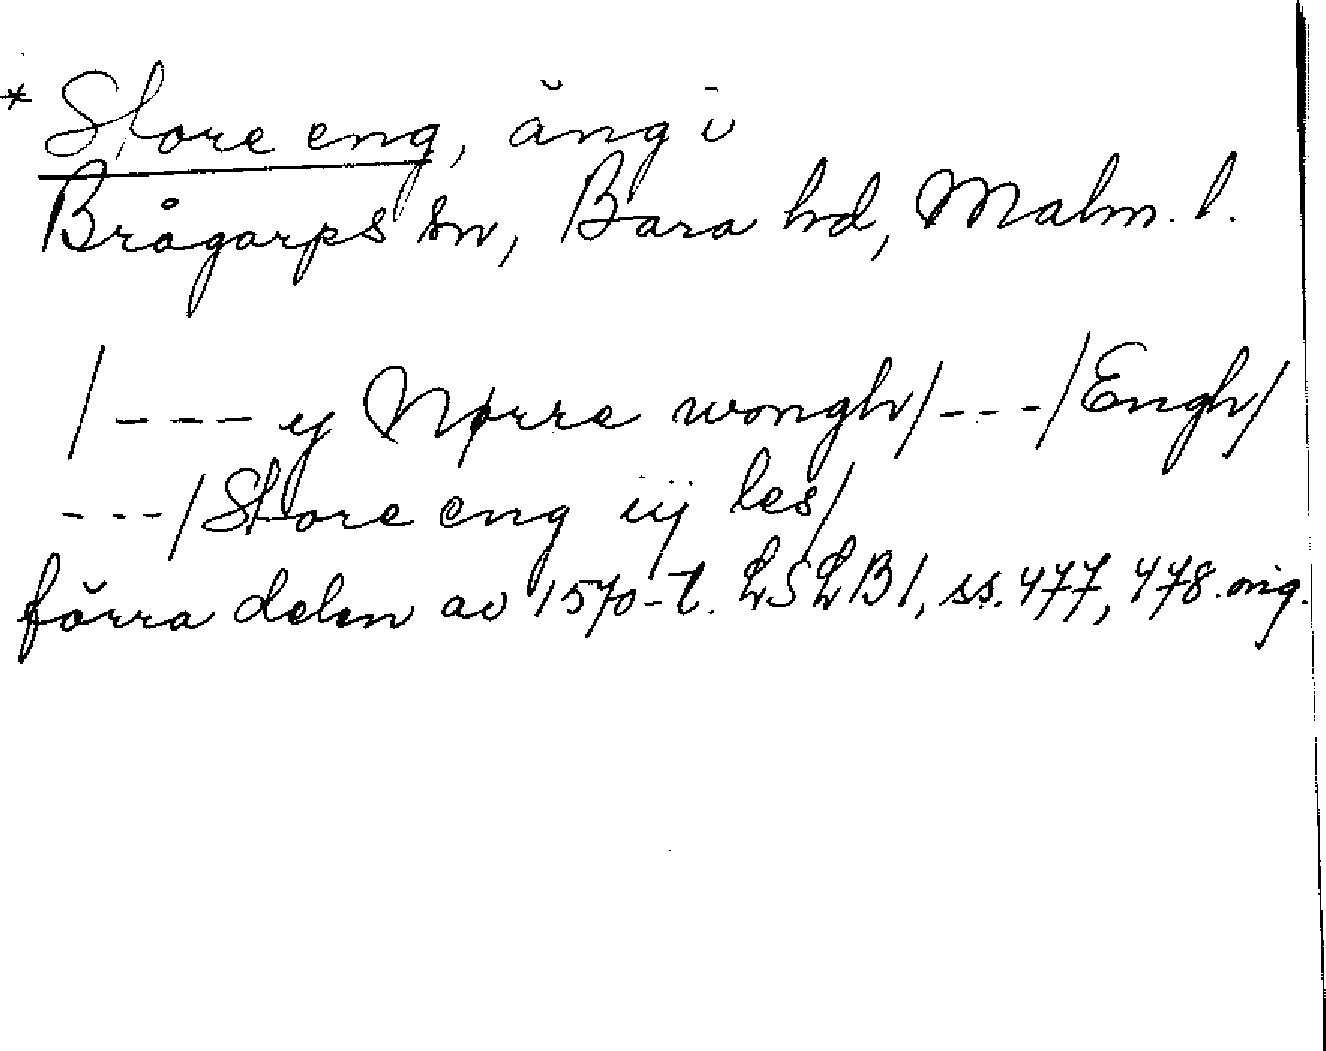 * Store eng, äng i
Brågarps sn, Bara hd, Malm. l.
/---- y Nørre wongh/---/Engh/
---/Store eng iij les/
förra delen av 1570-t. LSLB1, ss. 477, 478. orig.